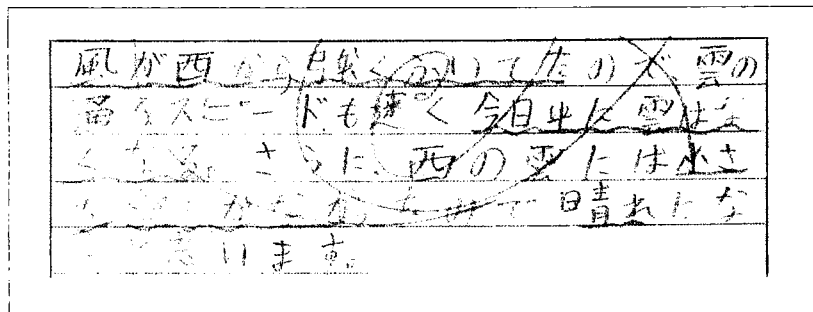 風が西から強くふいてたので、雲の
動くスピードも速く今日中に雲はな
くなる。さらに、西の雲には小さ
晴れにな
思います。